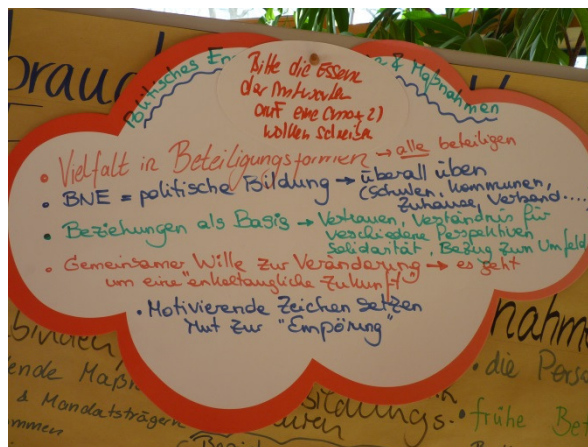 brauch
Politisches En & Maßnahmen
Bitte die Essenz
der Antworten
auf eine (max 2)
Wolken schreiben
• Vielfalt in Beteiligungsformen → alle beteiligen
• BNE = politische Bildung → überall üben
(Schulen, Kommunen,
Zuhause, Verband....
• Beziehungen als Basis → Vertrauen, Verständnis für
verschiedene Perspektiven
Solidarität, Bezug zum Umfeld
• Gemeinsamer Wille zur Veränderung → es geht
um eine "enkeltaugliche Zukunft"
• Motivierende Zeichen setzen
Mut zur "Empörung"
binden
nahm
ende Maßn
ildungs-
• die Perso
& Mandatsträgern
• frühe Be
ommen